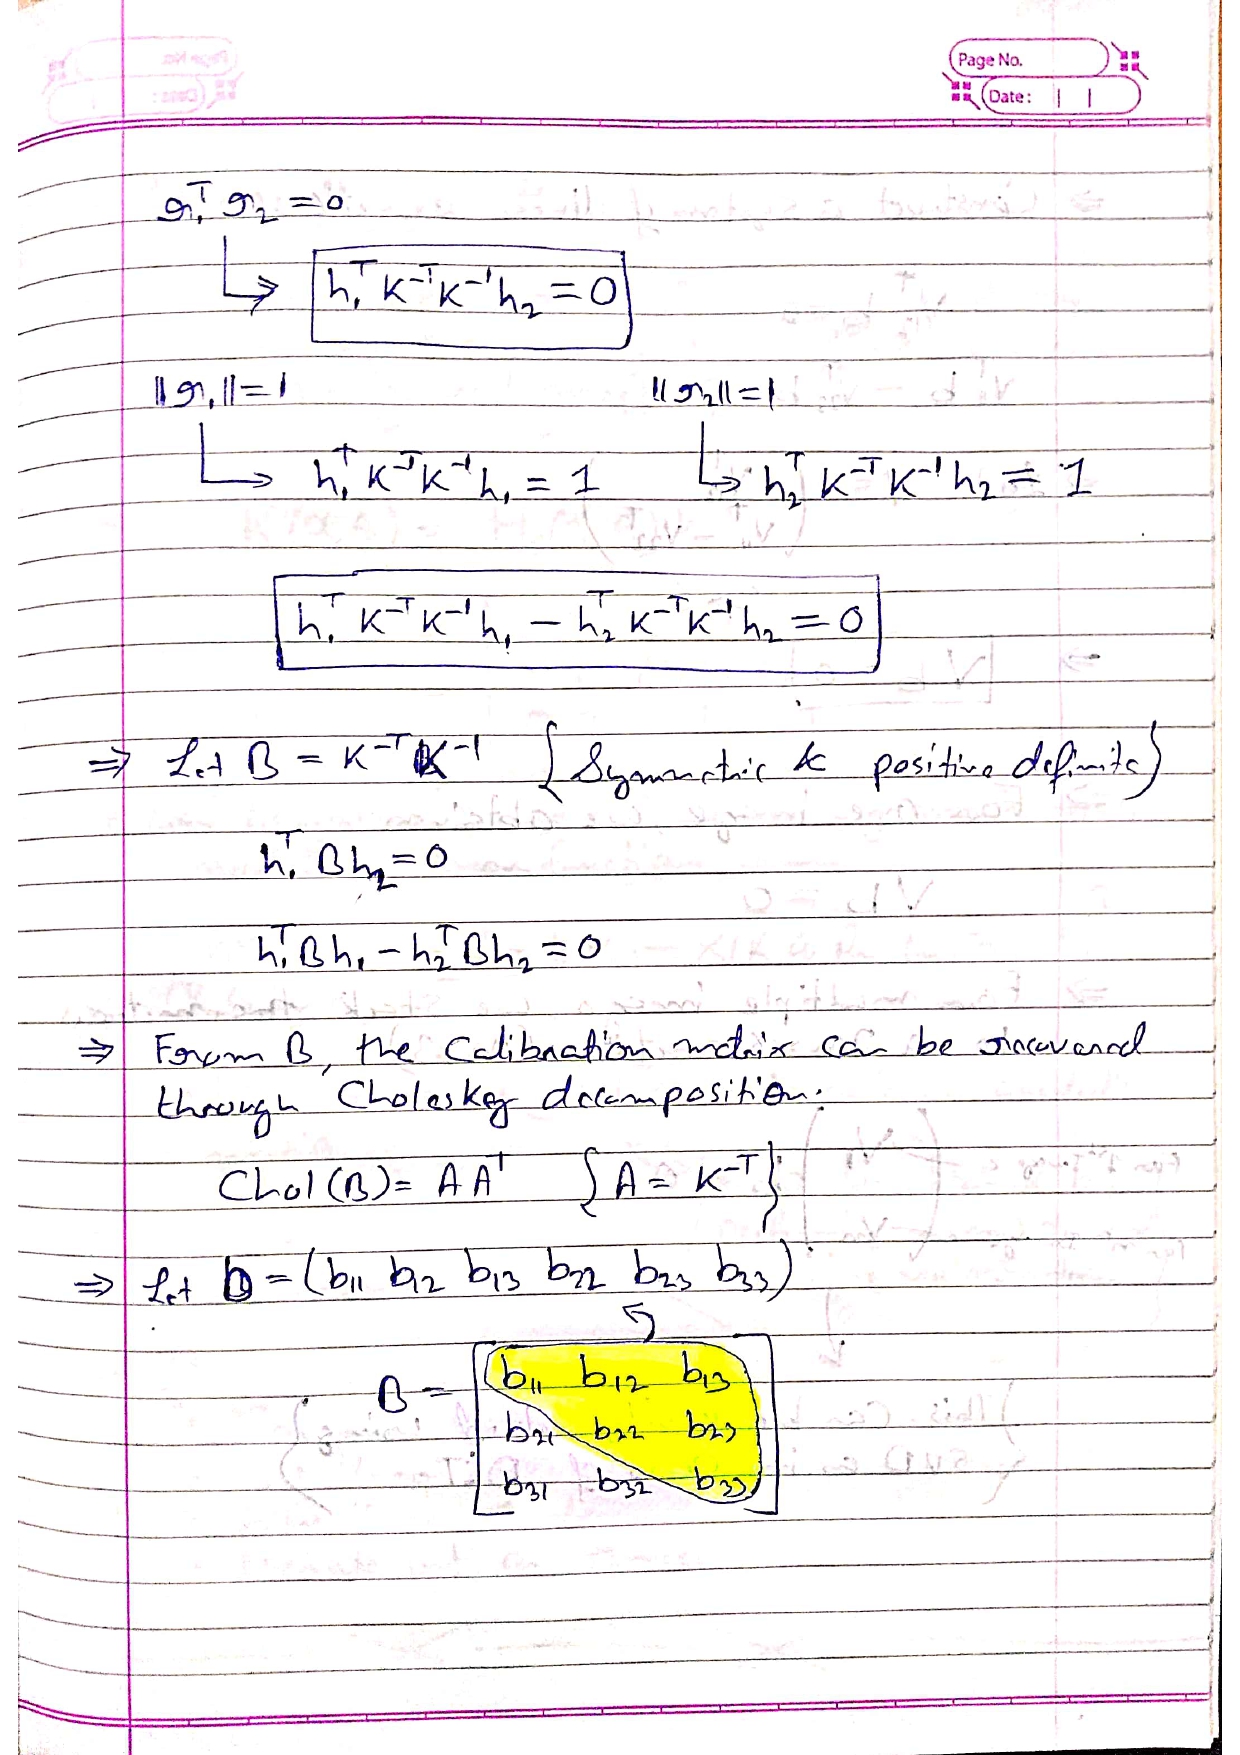 Page No.
Date:
r₁ᵀ r₂ = 0
↳ h₁ᵀ K⁻ᵀ K⁻¹ h₂ = 0
||r₁|| = 1 ||r₂|| = 1
↳ h₁ᵀ K⁻ᵀ K⁻¹ h₁ = 1 ↳ h₂ᵀ K⁻ᵀ K⁻¹ h₂ = 1
h₁ᵀ K⁻ᵀ K⁻¹ h₁ − h₂ᵀ K⁻ᵀ K⁻¹ h₂ = 0
⇒ Let B = K⁻ᵀ K⁻¹ {Symmetric & positive definite}
h₁ᵀ B h₂ = 0
h₁ᵀ B h₁ − h₂ᵀ B h₂ = 0
⇒ From B, the calibration matrix can be recovered
through Choleskey decomposition.
Chol(B) = A Aᵀ {A = K⁻ᵀ}
⇒ Let b = (b₁₁ b₁₂ b₁₃ b₂₂ b₂₃ b₃₃)
B = [b₁₁ b₁₂ b₁₃
b₂₁ b₂₂ b₂₃
b₃₁ b₃₂ b₃₃]